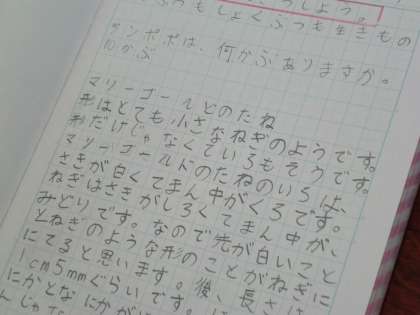 うぶつもしょくぶつも生きもの
タンポポは、何かぶありますか。
10かぶ
マリーゴールドのたね
形はとても小さなねぎのようです。
形だけじゃなくていろもそうです。
マリーゴールドのたねのいろは、
さきが白くてまん中がくろです。
ねぎはさきがしろくてまん中が、
みどりです。なので先が白いこと
とねぎのような形のことがねぎに
にてると思います。後、長さは
1cm5mmぐらいです。